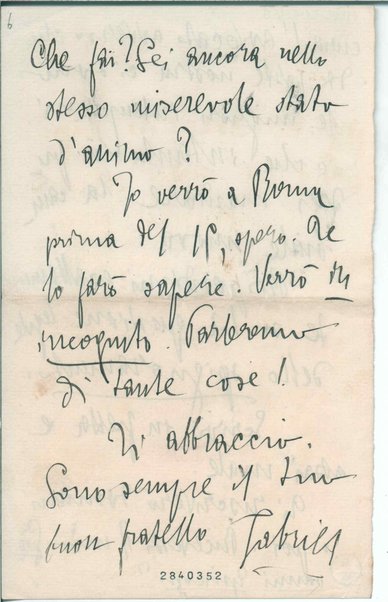 6
Che fai? Sei ancora nello
stesso miserevole stato
d'animo?
Io verrò a Roma
prima del 15, spero. Te
lo farò sapere. Verrò in
incognito. Parleremo
di tante cose!
Ti abbraccio.
Sono sempre il tuo
buon fratello Gabriel
2840352